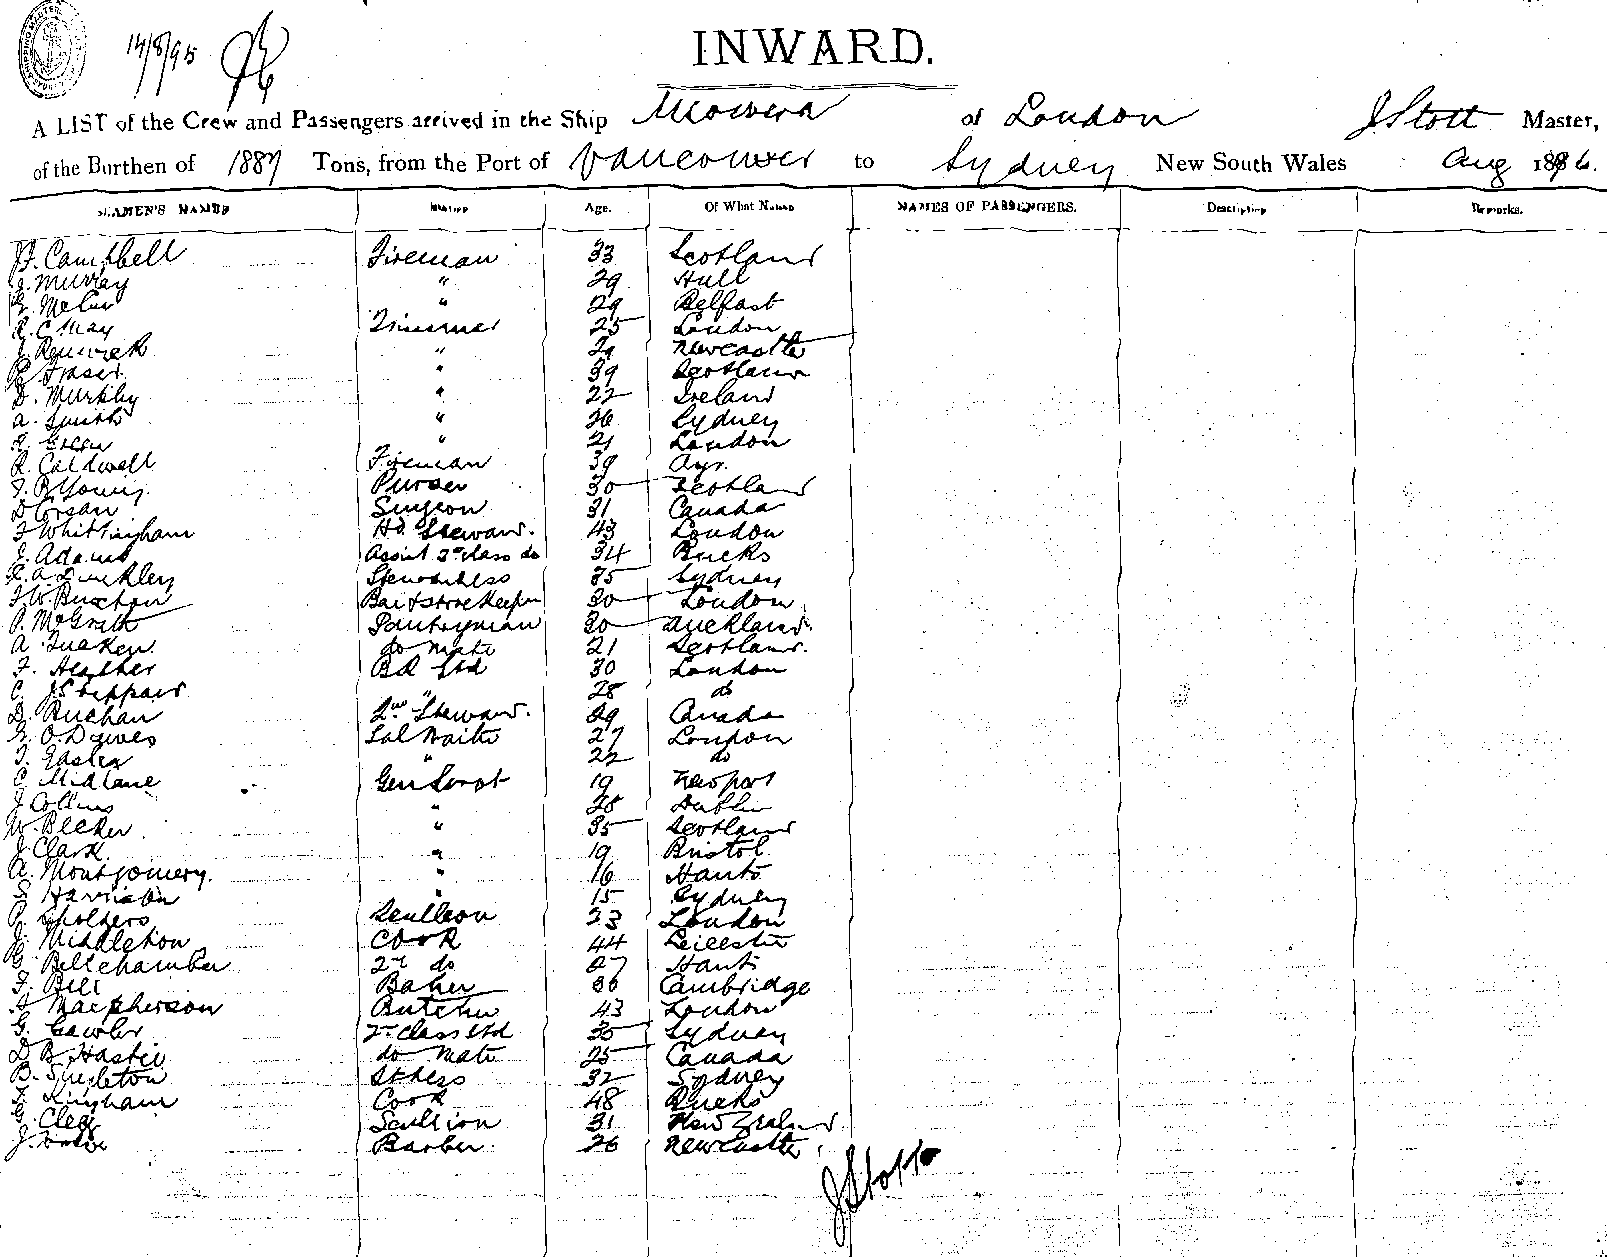 14/8/95
INWARD.
A LIST of the Crew and Passengers arrived in the Ship Mowera of London J Stott Master,
of the Burthen of 1887 Tons, from the Port of Vancouver to Sydney New South Wales Aug 1896.
SEAMEN'S NAMES Station Age. Of What Nation NAMES OF PASSENGERS. Description Remarks.
Campbell Fireman 33 Scotland
J. Murray " 29 Hull
" 29 Belfast
R. C May Trimmer 25 London
J. Renwick " 29 Newcastle
Fraser " 39 Scotland
D. Murphy " 22 Ireland
A. Smith " 26 Sydney
Green " 21 London
R. Caldwell Fireman 39 Ayr.
Young Purser 30 Scotland
D Corsan Surgeon 31 Canada
Whittingham Hd. Steward. 43 London
Adams Assist 3rd class do 34 Bucks
Stewardess 35 Sydney
Buxton Bar & storekeeper 30 London
P. McGrath Pantryman 30 Auckland.
A do mate 21 Scotland.
F. Heather Bd Std 30 London
C. J Sheppard " 28 do
D. Buchan 2nd Steward. 29 Canada
Sal Waiter 27 London
" 22 do
C. Midlane Gen Servt 19 Newport
J Collins " 28 Dublin
W. Becker " 35 Scotland
J. Clark " 19 Bristol
A. Montgomery. " 16 Hants
S. Harrison " 15 Sydney
Scullion 23 London
J. Middleton Cook 44 Leicester
G. Bellchamber 2nd do 27 Hants
F. Bell Baker 36 Cambridge
Macpherson Butcher 43 London
G. Gawler 2nd class Std 30 Sydney
D B. Hastie do mate 25 Canada
B. Singleton Stdess 32 Sydney
Kingham Cook 48 Bucks
G. Clegg Scullion 31 New Zealand.
J. Barber 26 Newcastle
J Stott